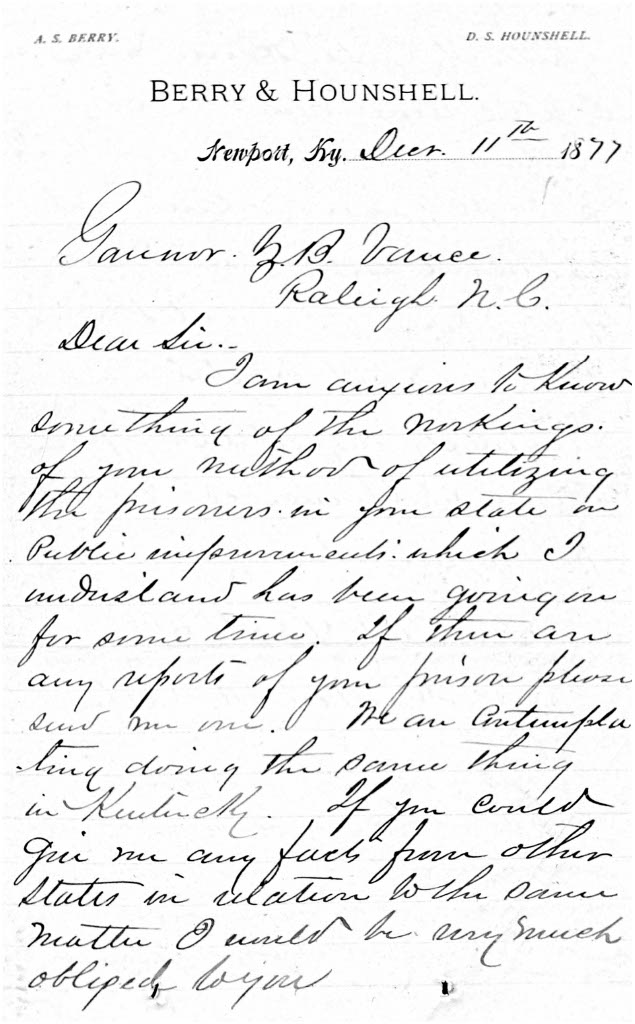 A. S. BERRY. D. S. HOUNSHELL.
BERRY & HOUNSHELL.
Newport, Ky. Decr. 11th 1877
Govenor. Z. B. Vance.
Raleigh N. C.
Dear Sir..
I am anxious to Know
something of the workings.
of your method of utilizing
the prisoners in your state on
Public improvements. which I
understand has been going on
for some time. If there are
any reports of your prison please
send me one. We are Contempla
ting doing the same thing
in Kentucky. If you could
give me any facts from other
states in relation to the same
matter I would be very much
obliged, to you